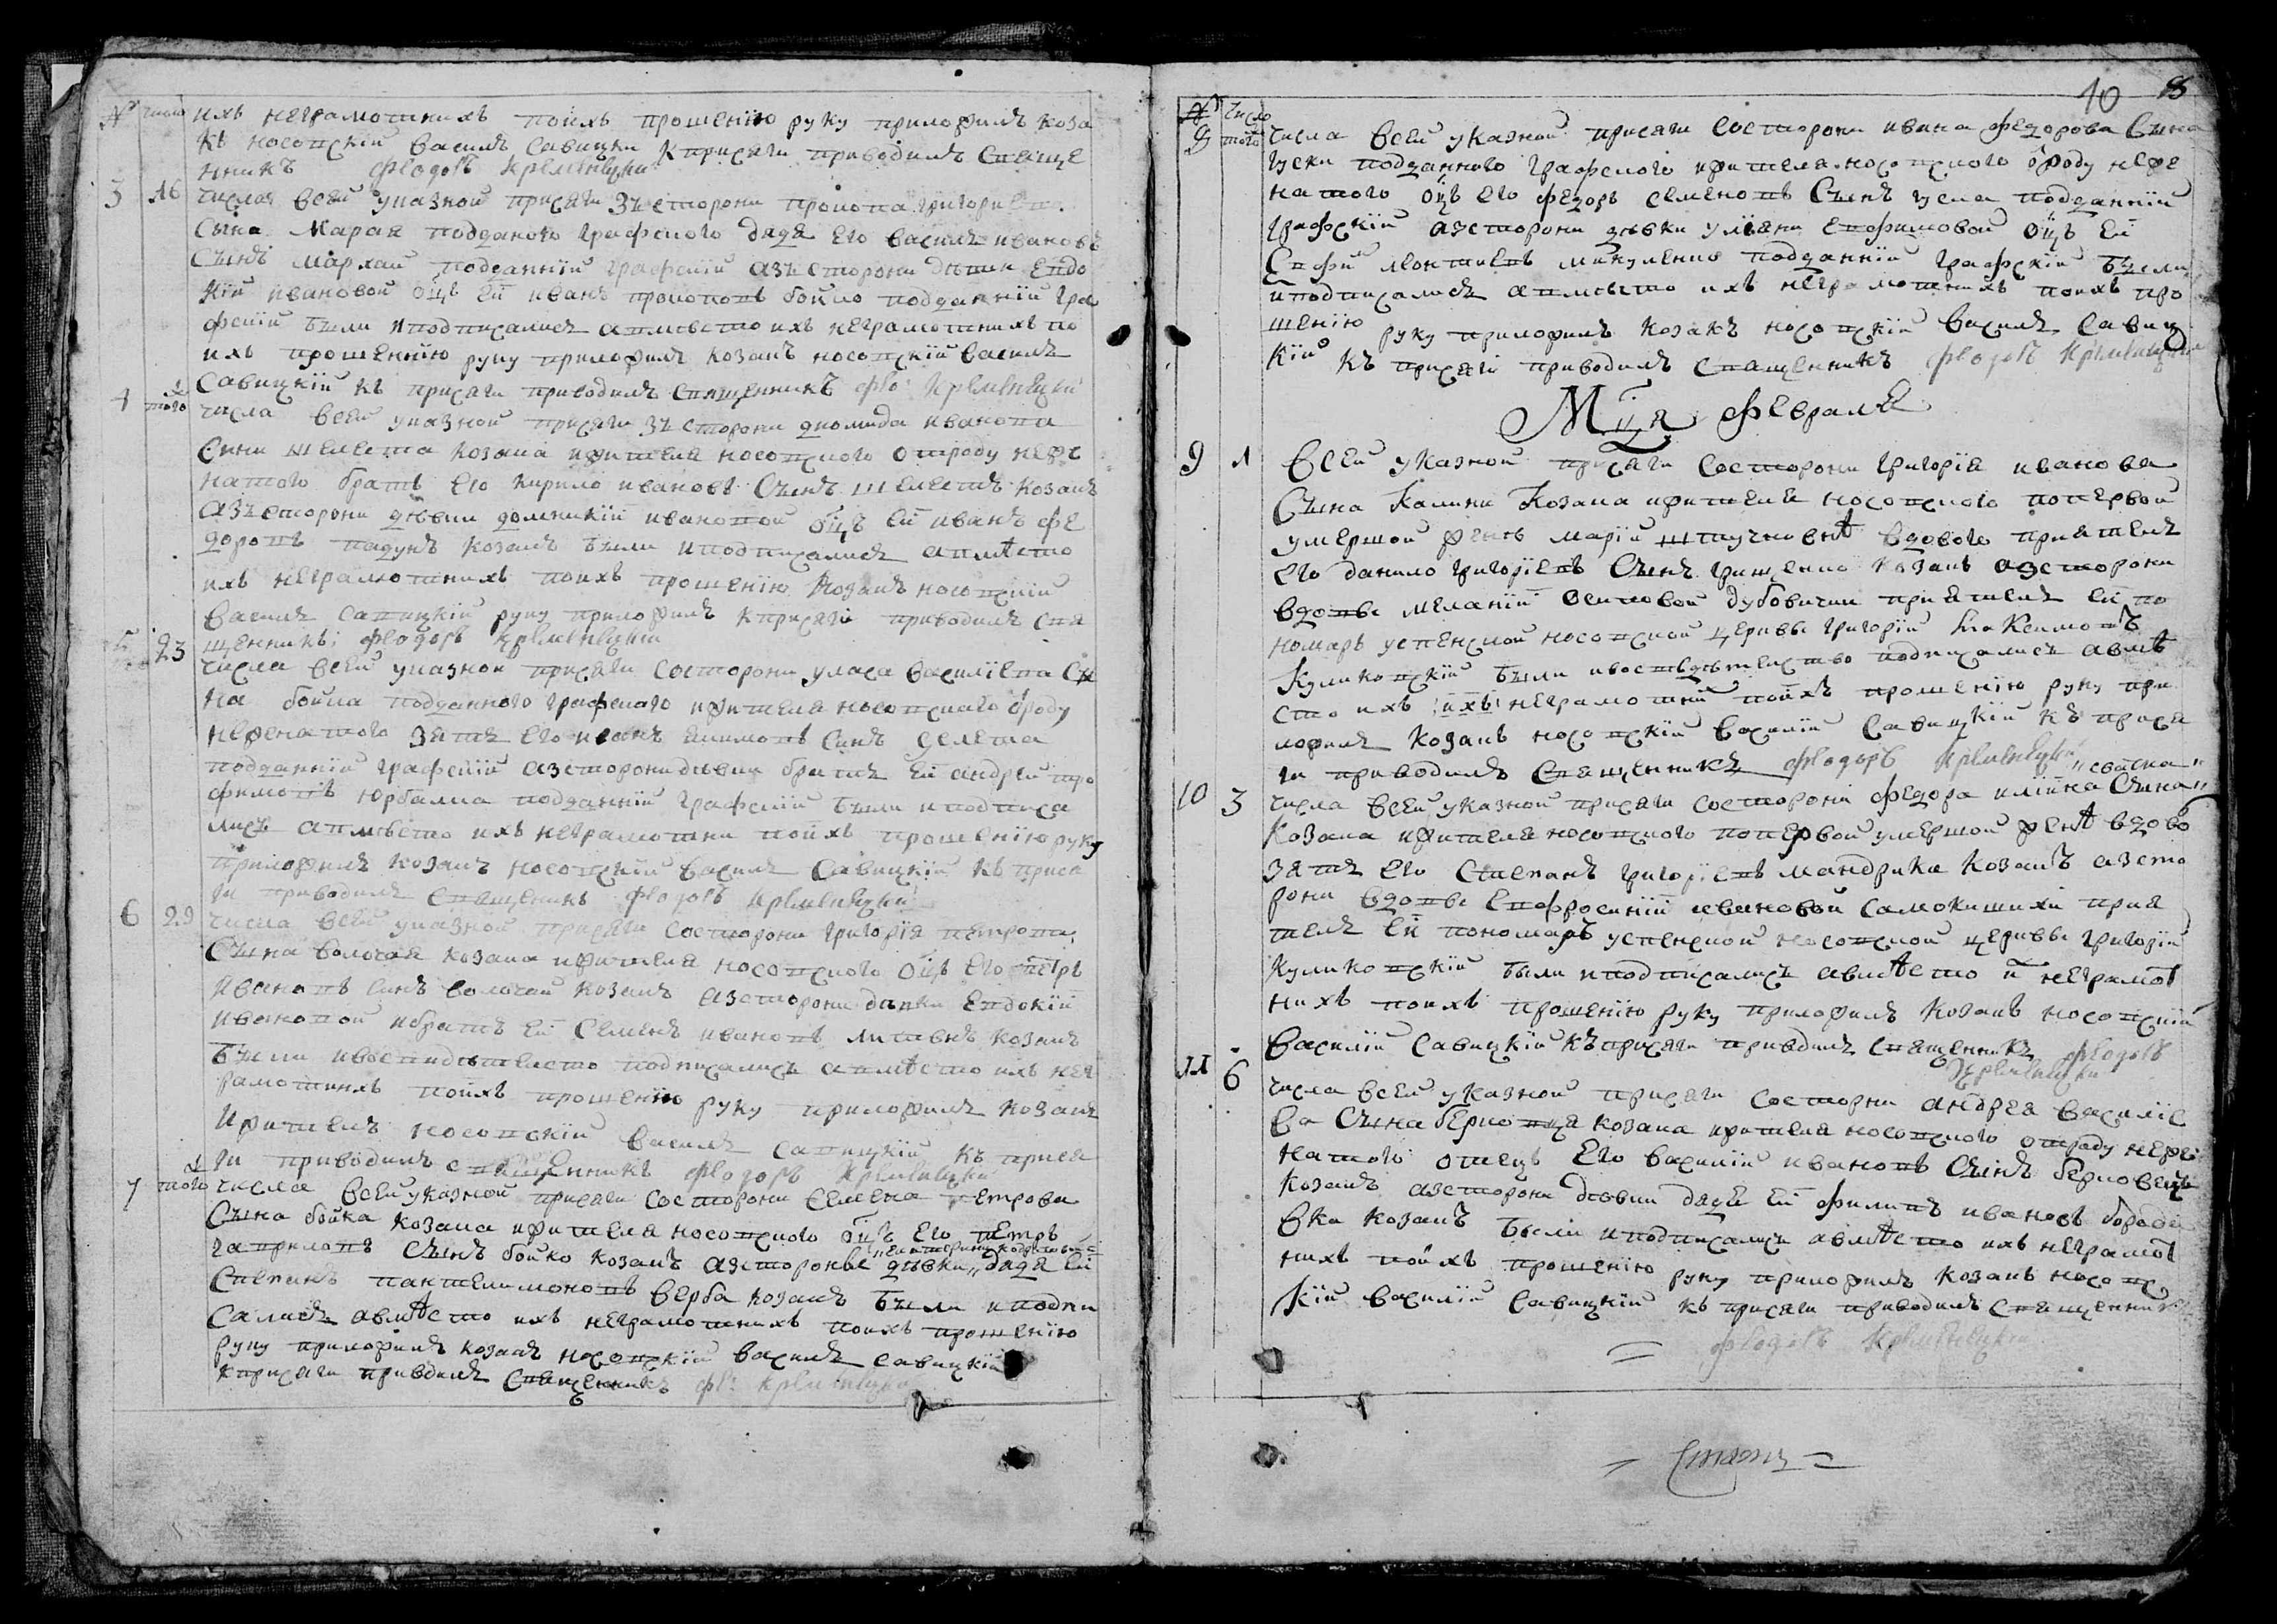 № число ихъ неграмотнихъ поихъ прошенїю руку приложилъ коза
къ носопскїй василь Савицки Кприсяги приводилъ Спяще
нникъ Феодоръ Кременецки
3 16 числа всей указной присяги зъсторони прокопа григориепа
Сына Мархая подданого графского дядя Его василь ивановъ
Сынъ мархай подданнїй графскїй азъ стороны дѣвки Епдо
кїи ивановой оц҃ъ Ей иванъ прокопопъ бойко подданнїй гра
фскїй были иподписались апмѣсто ихъ неграмотнихъ по
ихъ прошеннїю руку приложилъ козакъ носопскїй василь
Савицкїй къ присяги приводилъ Спященникъ Фео: Кременецкїй
4 того числа всей указной присяги зъ сторони диомида иванопа
Сина шелеста козака ижителя носопского отроду неже
натого братъ Его кирило ивановъ Сынъ шелестъ козакъ
Азъсторони дѣвки домникїи иванопой оц҃ъ Ей иванъ фе
доропъ падунъ козакъ были иподписались апмѣсто
ихъ неграмотнихъ поихъ прошенїю козакъ носопскїй
василь Сапицкїй руку приложилъ кприсягї приводилъ Спя
щенникъ: Феодоръ Кременецкїй
5 23 числа всей указной присяги состороны уласа василїепа Сы
на бойка подданного графского ижителя носопского ѿроду
неженатого зять Его иванъ екимопъ синъ
подданнїй графскїй азсторони дѣвки братъ Ей андрей тро
фимопъ подданнїй графскїй были иподписа
лись апмѣсто ихъ неграмотни поихъ прошенїю руку
приложилъ козакъ носопскїй василь Савицкїй къ прися
ги приводилъ Спященникъ Феодоръ Кременецкїй
6 29 числа всей указной присяги состорони григорїя петропа
Сына волочая козака ижителя носопского оц҃ъ Его петръ
иванопъ синъ волочай козакъ азсторони Епдокїи
иванопой ибратъ Ей Семенъ иванопъ литвинъ козакъ
были ивоспидѣтелство подписались апмѣсто ихъ нег
рамотнихъ поихъ прошенїю руку приложилъ козакъ
ижитель носопскїй василь Сапицкїй къ прися
ги приводилъ спященникъ Феодоръ Кременецкїй
7 того числа всей указной присяги состорони Семена петрова
Сына бойка козака ижителя носопского оц҃ъ Его петръ
гаприлопъ Сынъ бойко козакъ азстороны дѣвки дядя Ей
Степанъ пантелимонопъ верба козакъ были иподпи
сались авмѣсто ихъ неграмотнихъ поихъ прошенїю
руку приложилъ козакъ носопскїй василь савицкїй
кприсяги приводилъ Спященникъ Фе: Кременецки
10 8
№ число
8 того числа всей указной присяги состорони ивана федорова Сына
гуски подданного графского ижителя носопского ѿроду неже
натого оц҃ъ Его федоръ семенопъ Сынъ гуска подданнїй
графскїй азсторони дѣвки улїяни Епфимовой оц҃ъ Ей
Епфи леонтиепъ микуленко подданнїй графскїй были
иподписались апмѣсто ихъ неграмотнихъ поихъ про
шенїю руку приложилъ козакъ носопскїй василь Савиц
кїй къ присягї приводилъ Спященникъ Феодоръ Кременецкїй
Мц҃а Февраля
9 1 всей указной присяги Состорони григорїя иванова
Сына Калини Козака ижителя носопского поперьвой
умершой женѣ марїи вдового приятель
Его данило григорїепъ Сынъ грищенко козакъ азсторони
вдопы меланїи осиповой дубовички приятель Ей по
номарь успенской носопской церквы григорїй
Куликопскїй были ивоспидѣтелство подписались авмѣ
сто ихъ ихъ неграмотни поихъ прошенїю руку при
ложилъ козакъ носопскїй василїй Савицкїй къ прися
ги приводилъ Спященникъ Феодоръ Кременецкїй
10 3 числа всей указной присяги состоронї федора илїина Сына
Козака ижителя носопского поперьвой умершой женѣ вдово
зять Его Степанъ григорїепъ мандрика козакъ азсто
рони вдопы Епфросинїи ивановой самокишихи прия
тель Ей пономарь успенской носопской церквы григорїй
куликопскїй были иподписались авмѣсто и неграмот
нихъ поихъ прошенїю руку приложилъ козакъ носопскїй
василїй савицкїй къприсяги приводилъ Спященникъ Феодоръ
Кременецки
11 6 числа всей указной присяги состорни андрея василїе
ва Сына козака ижителя носопского отроду неже
натого отецъ Его василїй иванопъ Сынъ
козакъ азсторони дѣвки дядя Ей филипъ ивановъ
вка козакъ были иподписались авмѣсто ихъ неграмот
нихъ поихъ прошенїю руку приложилъ козакъ носопс
кїй василїй Савицкїй къ присяги приводилъ Спященникъ
Феодоръ Кременецки